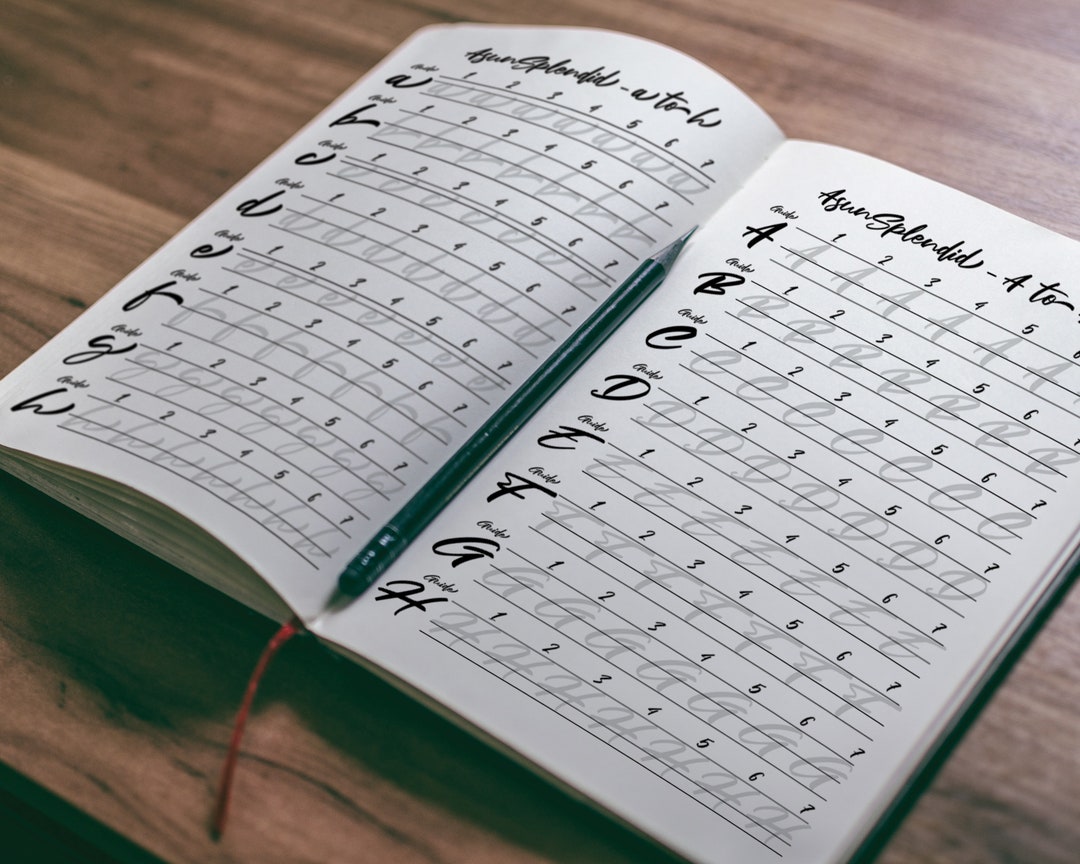 AsunSplendid - a to h
Guide 1 2 3 4 5 6 7
a a a a a a a a
Guide 1 2 3 4 5 6 7
b b b b b b b b
Guide 1 2 3 4 5 6 7
c c c c c c c c
Guide 1 2 3 4 5 6 7
d d d d d d d d
Guide 1 2 3 4 5 6 7
e e e e e e e e
Guide 1 2 3 4 5 6 7
f f f f f f f f
Guide 1 2 3 4 5 6 7
g g g g g g g g
Guide 1 2 3 4 5 6 7
h h h h h h h h
AsunSplendid - A to
Guide 1 2 3 4 5
A A A A A A A
Guide 1 2 3 4 5 6 7
B B B B B B B B
Guide 1 2 3 4 5 6 7
C C C C C C C C
Guide 1 2 3 4 5 6 7
D D D D D D D D
Guide 1 2 3 4 5 6 7
E E E E E E E E
Guide 1 2 3 4 5 6 7
F F F F F F F F
Guide 1 2 3 4 5 6 7
G G G G G G G G
Guide 1 2 3 4 5 6 7
H H H H H H H H